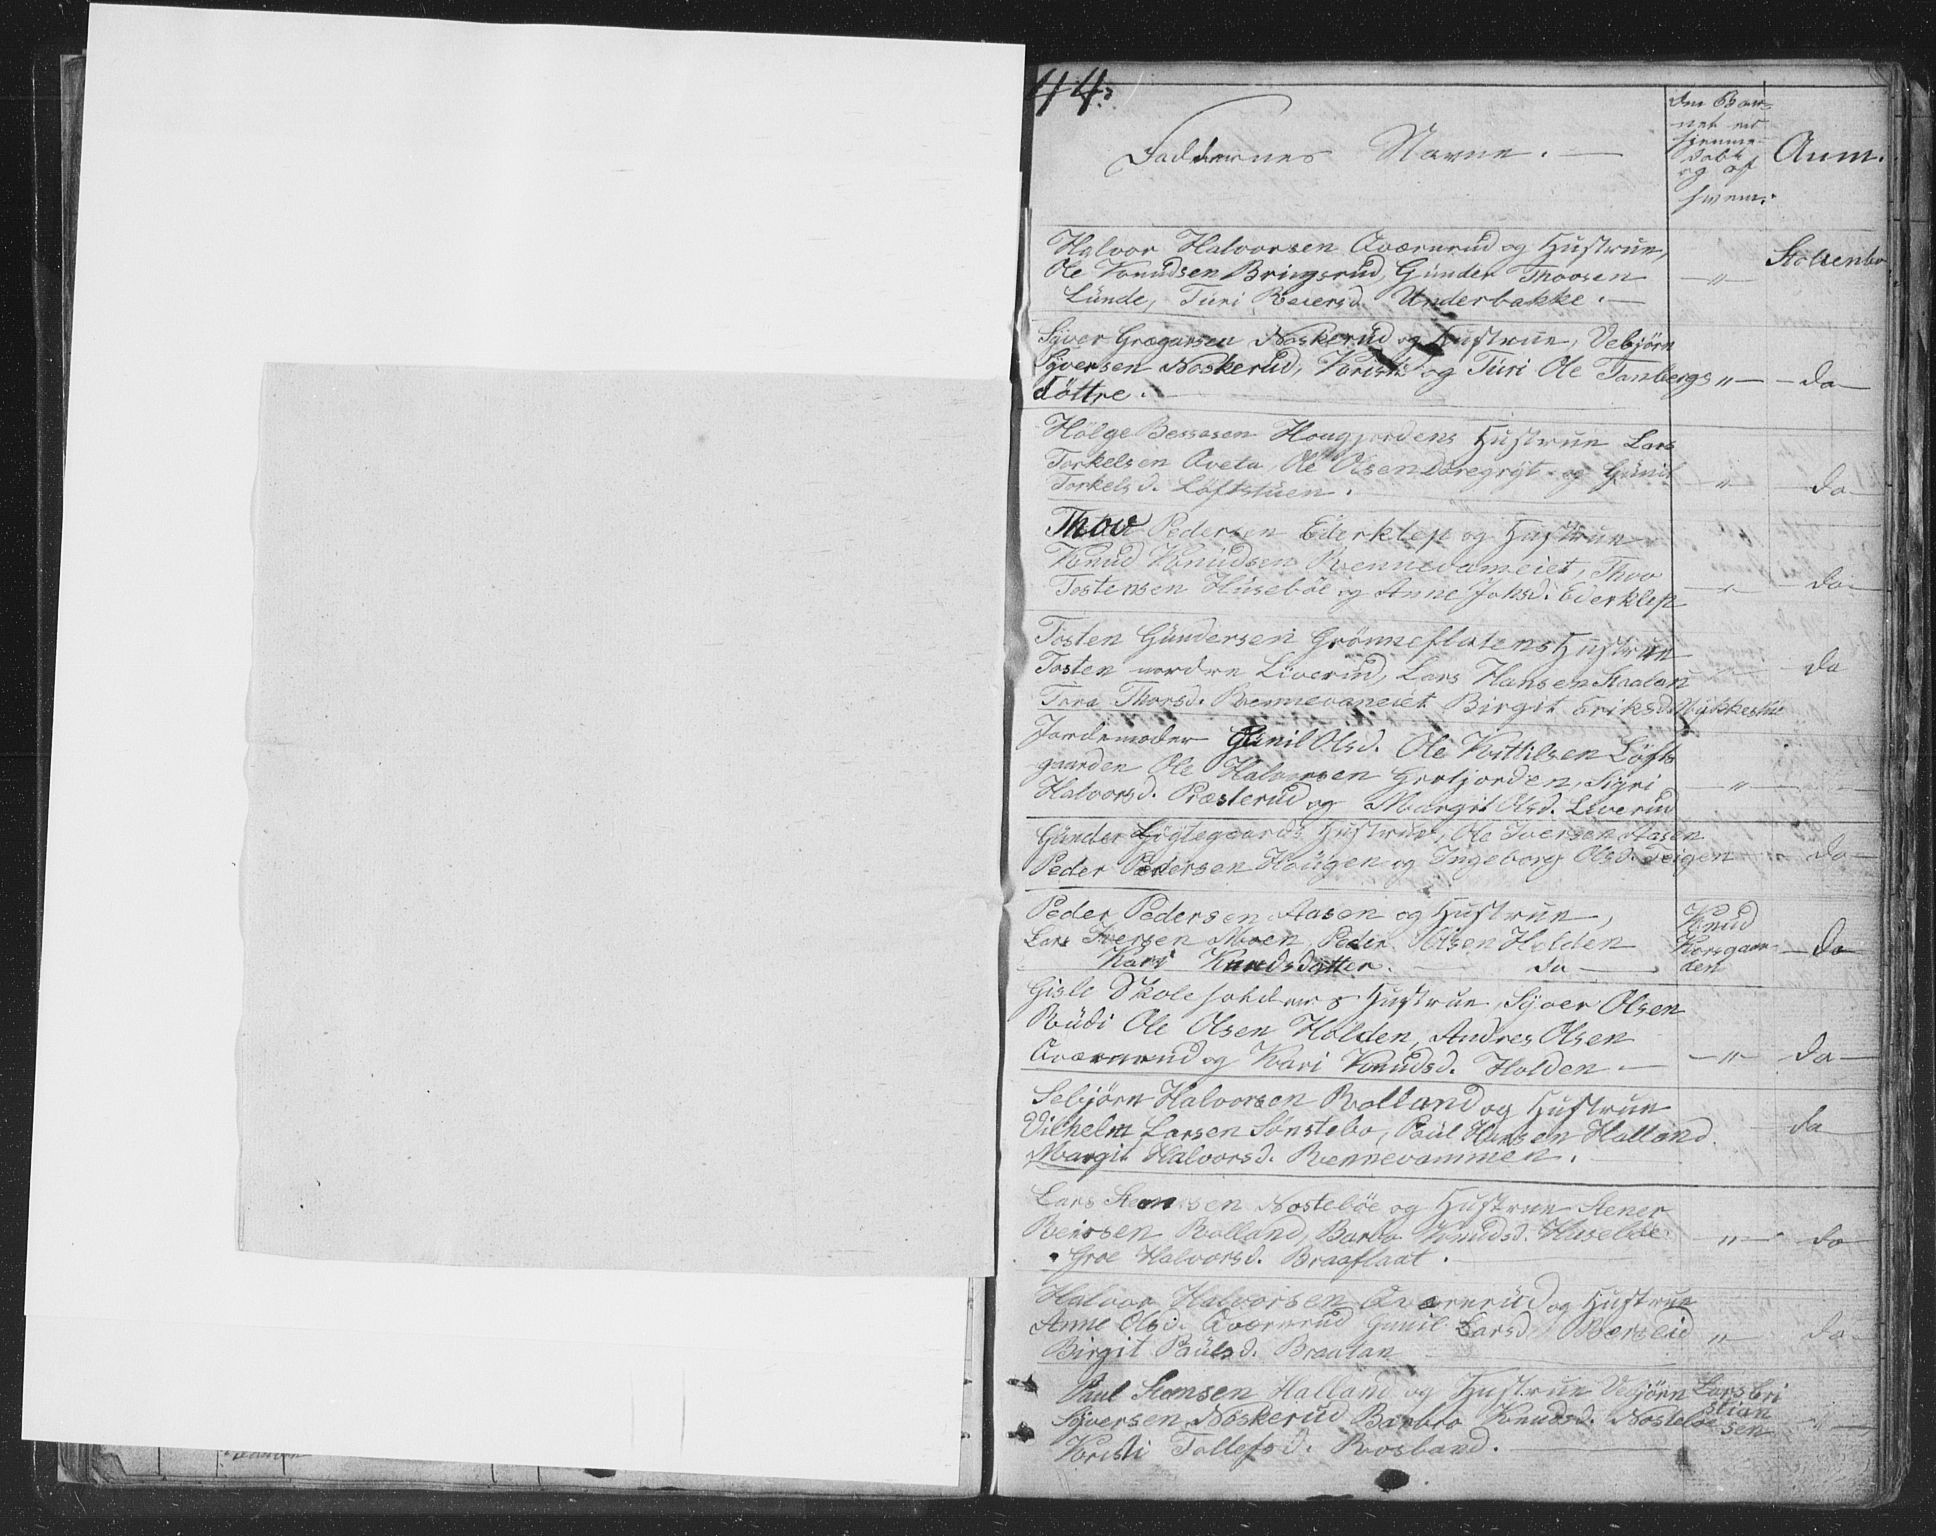 44.
Faddernes Navne.
Om Bar-
net er
hjemme-
døbt
og af
hvem.
Anm.
Halvor Halvorsen Qværnrud og Hustrue,
Ole Knudsen Bringsrud, Gunder Thovsen
Lunde, Turi Reiersd. Underbakke.
"
Stolsenbo
Syver Gregarsen Noskerud og Hustrue, Vebjörn
Syversen Noskerud, Kristi og Turi Ole Tanbergs
döttre.
" do
Hölge Bessesen Hougjordens Hustrue Lars
Torkelsen Qveta, Ole Olsen og Gunil
Torkelsd. Löftstuen.
" do
Thov Pedersen Ederklep og Hustrue
Knud Knudsen Rennevameiet, Thov
Tostensen Huseböe og Anne Johsd. Ederklep
" do
Tosten Gundersen Grönneflatens Hustrue
Tosten nordre Liverud, Lars Hansen
Tora Thorsd. Rennevameiet Birgit Eriksd.
do
Jordemoder Gunil Olsd. Ole Kittilsen Löfts
gaarden Ole Halvorsen Hertjorden, Sigri
Halvorsd. Præsterud og Margit Olsd. Liverud
"
Gunder Lögtegaards Hustrue, Ole Iversen Aasen
Peder Pedersen Hougen og Ingeborg Olsd. Teigen
" do
Peder Pedersen Aasen og Hustrue,
Lars Iversen Moen, Peder Olsen Holden
Kari Knudsdatter. do
Knud
Korsgaar-
den
do
Gisle Skoleholders Hustrue, Syver Olsen
Rudi Ole Olsen Holden, Andres Olsen
Qværnrud og Kari Knudsd. Holden.
" do
Sebjörn Halvorsen Rolland og Hustrue
Vilhelm Larsen Sönstebo, Paul Hansen Halland.
Margit Halvorsd. Rennevammen.
do
Lars Stensen Nosteböe og Hustrue Stener
Reirsen Rolland, Barbo Knudsd. Huseböe
Groe Halvorsd. Braaflaat.
" do
Halvor Halvorsen Qværnrud og Hustrue
Anne Olsd. Qværnrud Gunil Larsd. Børseid
Birgit Paulsd. Braatan
" do
Paul Stensen Halland og Hustrue Vebjörn
Syversen Noskerud Barbro Knudsd. Nosteböe
Kristi Tollefsd. Rosland.
Lars Cri
stian
sen
"